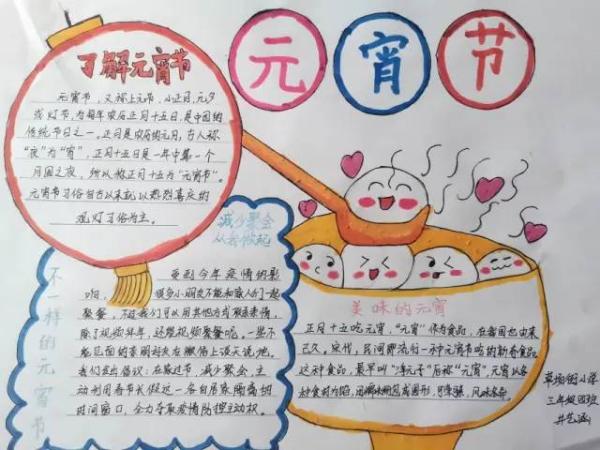 元宵节
了解元宵节
元宵节,又称上元节,小正月,元夕
或灯节,为每年农历正月十五日,是中国的
传统节日之一。正月是农历的元月,古人称
"夜"为"宵",正月十五日是一年中第一个
月圆之夜,所以称正月十五为"元宵节"。
元宵节习俗自古以来就以热烈喜庆的
观灯习俗为主。
减少聚会
从我做起
不一样的元宵节
受到今年疫情的影
响,很多小朋友不能和家人们一起
聚餐,不过我们可以用其他方式联系亲情,
除了视频拜年,还能视频聚餐呢。一些不
能见面的亲朋好友在微信上谈天说地。
我们发出倡议:在家过节,减少聚会,主
动利用春节长假这一各自居家隔离的
时间窗口,全力夺取疫情防控主动权。
美味的元宵
正月十五吃元宵,"元宵"作为食品,在我国也由来
已久,宋代,民间即流行一种元宵节吃的新奇食品
这种食品,最早叫"浮元子"后称"元宵",元宵以各
种食材为馅,用糯米粉包成圆形,可荤可素,风味各异。
草场街小学
三年级四班